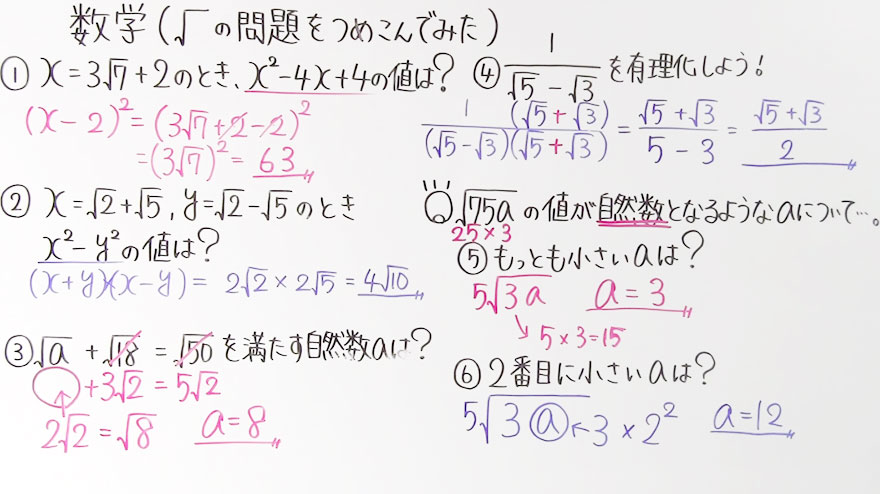 数学(√の問題をつめこんでみた)
① x=3√7+2のとき、x²-4x+4の値は?
(x-2)²=(3√7+2-2)²
=(3√7)²=63
② x=√2+√5, y=√2-√5のとき
x²-y²の値は?
(x+y)(x-y)= 2√2×2√5=4√10
③ √a +√18 =√50 を満たす自然数aは?
○+3√2=5√2
2√2=√8 a=8
④ 1/(√5-√3) を有理化しよう!
1(√5+√3)/(√5-√3)(√5+√3) = (√5+√3)/(5-3) = (√5+√3)/2
√75a の値が自然数となるようなaについて…。
25×3
⑤もっとも小さいaは?
5√3a a=3
5×3=15
⑥2番目に小さいaは?
5√3a ←3×2² a=12